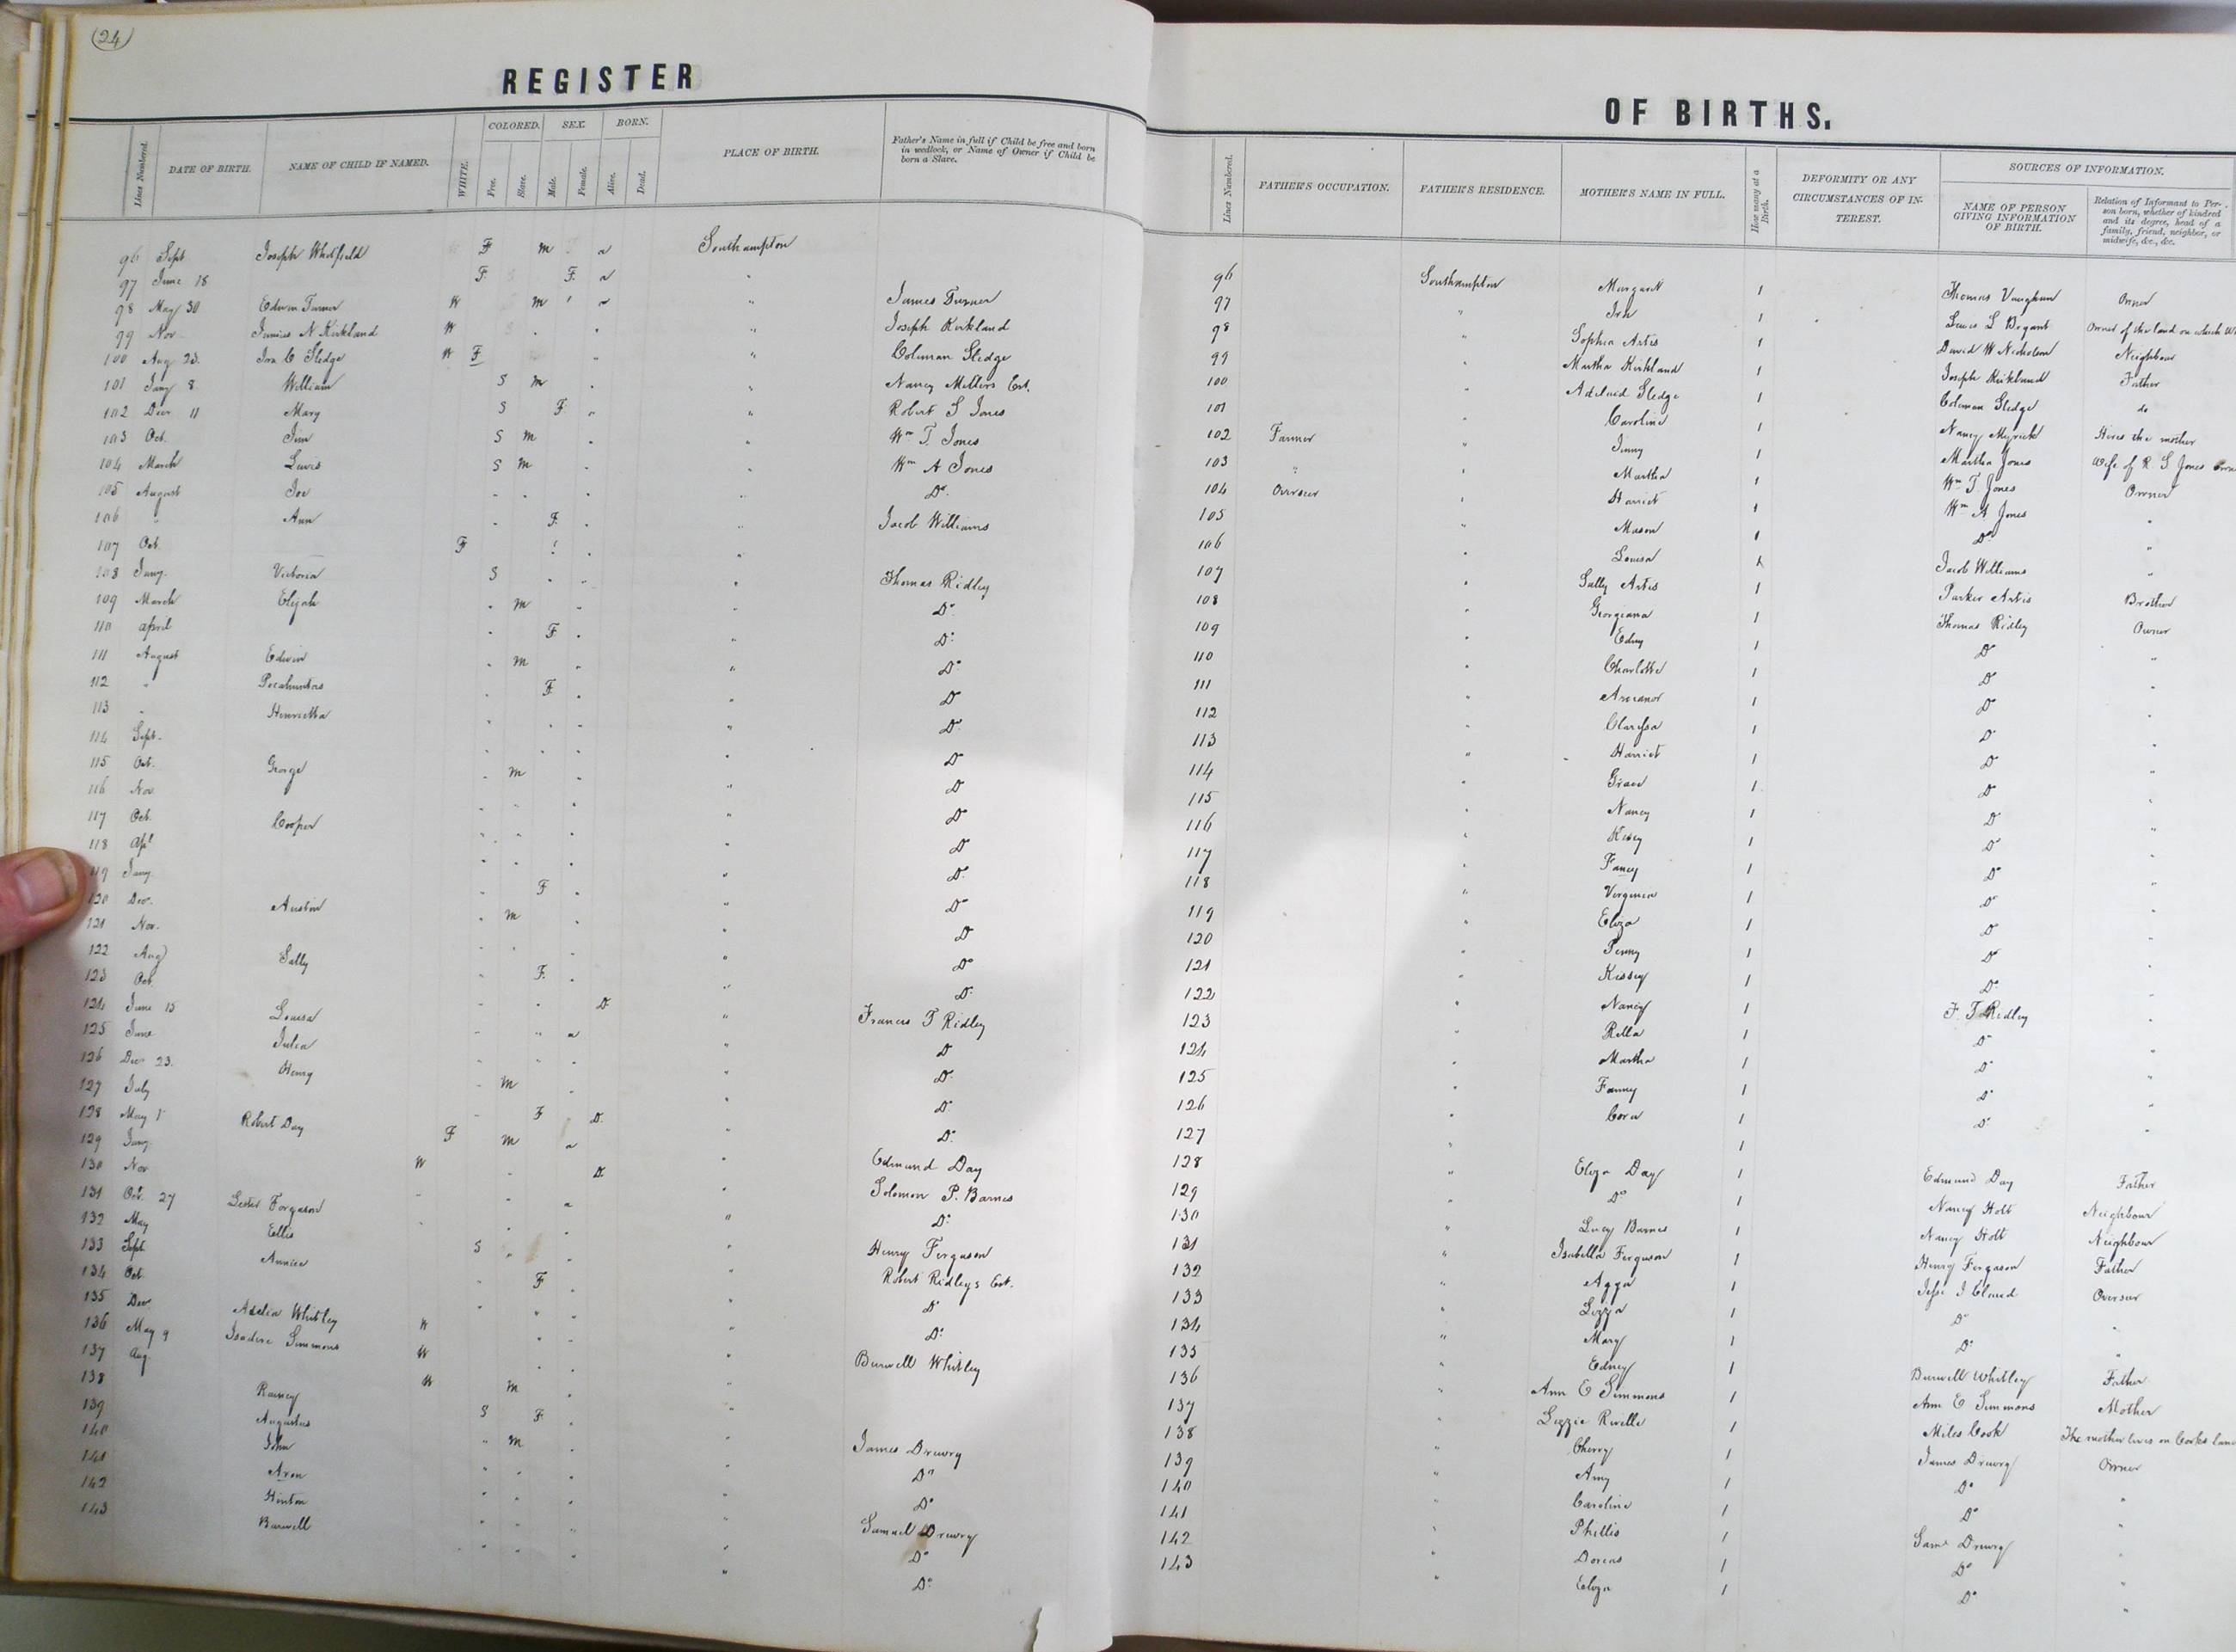 (24)
REGISTER
Lines Numbered. DATE OF BIRTH. NAME OF CHILD IF NAMED. WHITE. COLORED. Free. Slave. SEX. Male. Female. BORN. Alive. Dead. PLACE OF BIRTH. Father's Name in full if Child be free and born in wedlock, or Name of Owner if Child be born a Slave.
96 Sept Joseph Whitfield F m a Southampton
97 June 18 F F a "
98 May 30 Edwin Turner W m a " James Turner
99 Nov Junius N Kirkland W " Joseph Kirkland
100 Aug 23. Ira C Sledge W F " Coleman Sledge
101 Jany 8 William S m " Nancy Millers Est.
102 Decr 11 Mary S F " Robert S Jones
103 Oct. Jim S m " Wm T. Jones
104 March Lewis S m " Wm A Jones
105 August Joe " Do
106 " Ann F " Jacob Williams
107 Oct. F "
108 Jany. Victoria S " Thomas Ridley
109 March Elijah m " Do
110 April F " Do
111 August Edwin m " Do
112 " Pocahuntas F " Do
113 " Henrietta " Do
114 Sept. " Do
115 Oct. George m " Do
116 Nov " Do
117 Oct. Cooper " Do
118 Apl " Do
119 Jany. F " Do
120 Dec. Austin m " Do
121 Nov. " Do
122 Aug Sally F. " Do
123 Oct. D.
124 June 15 Louisa a " Francis T Ridley
125 June Julia " Do
126 Decr 23. Henry m " Do
127 July F D. " Do
128 May 1 Robert Day F m a " Do
129 Jany W D. " Edmund Day
130 Nov " Solomon P. Barnes
131 Oct. 27 Lester Ferguson " Do
132 May Ellis S " Henry Ferguson
133 Sept Annice F " Robert Ridleys Est.
134 Oct. " Do
135 Dec. Adelia Whitley W " Do
136 May 9 Isadore Simmons W " Burwell Whitley
137 Aug. W m "
138 Raney S F "
139 Augustus m " James Drewry
140 John " Do
141 Aron " Do
142 Hinton " Samuel Drewry
143 Burwell " Do
" Do
OF BIRTHS.
Lines Numbered. FATHER'S OCCUPATION. FATHER'S RESIDENCE. MOTHER'S NAME IN FULL. How many at a Birth. DEFORMITY OR ANY CIRCUMSTANCES OF INTEREST. SOURCES OF INFORMATION. NAME OF PERSON GIVING INFORMATION OF BIRTH. Relation of Informant to Person born, whether of kindred and its degree, head of a family, friend, neighbor, or midwife, &c., &c.
96 Southampton Margaret 1 Thomas Vaughan Owner
97 " 1 Lewis L Bryant Owner of the land on which
98 " Sophia Artis 1 David W Nicholson Neighbour
99 " Martha Kirkland 1 Joseph Kirkland Father
100 " Adelaid Sledge 1 Coleman Sledge do
101 " Caroline 1 Nancy Myrick Hires the mother
102 Farmer " Jinny 1 Martha Jones Wife of R. S Jones
103 " " Martha 1 Wm T Jones Owner
104 Overseer " Harriet 1 Wm A Jones "
105 " Mason 1 Do "
106 " Louisa 1 Jacob Williams "
107 " Sally Artis 1 Parker Artis Brother
108 " Georgiana 1 Thomas Ridley Owner
109 " Edny 1 Do "
110 " Charlotte 1 Do "
111 " 1 Do "
112 " Clarissa 1 Do "
113 " Harriet 1 Do "
114 " Grace 1 Do "
115 " Nancy 1 Do "
116 " Kisey 1 Do "
117 " Fancy 1 Do "
118 " Virginia 1 Do "
119 " Eliza 1 Do "
120 " Penny 1 Do "
121 " Kissey 1 Do "
122 " Nancy 1 F. T Ridley "
123 " Rilla 1 Do "
124 " Martha 1 Do "
125 " Fanny 1 Do "
126 " Cora 1 Do "
127 " 1
128 " Eliza Day 1 Edmund Day Father
129 " Do 1 Nancy Holt Neighbour
130 " Lucy Barnes 1 Nancy Holt Neighbour
131 " Isabella Ferguson 1 Henry Ferguson Father
132 " Agga 1 Overseer
133 " Lizza 1 Do "
134 " Mary 1 Do "
135 " Edney 1 Burwell Whitley Father
136 " Ann E Simmons 1 Ann E Simmons Mother
137 " Lizzie Rwelle 1 Miles Cook The mother lives on Cooks land
138 " Cherry 1 James Drewry Owner
139 " Amy 1 Do "
140 " Caroline 1 Do "
141 " Phillis 1 Saml Drewry "
142 " Dorcas 1 Do "
143 " Eliza 1 Do "